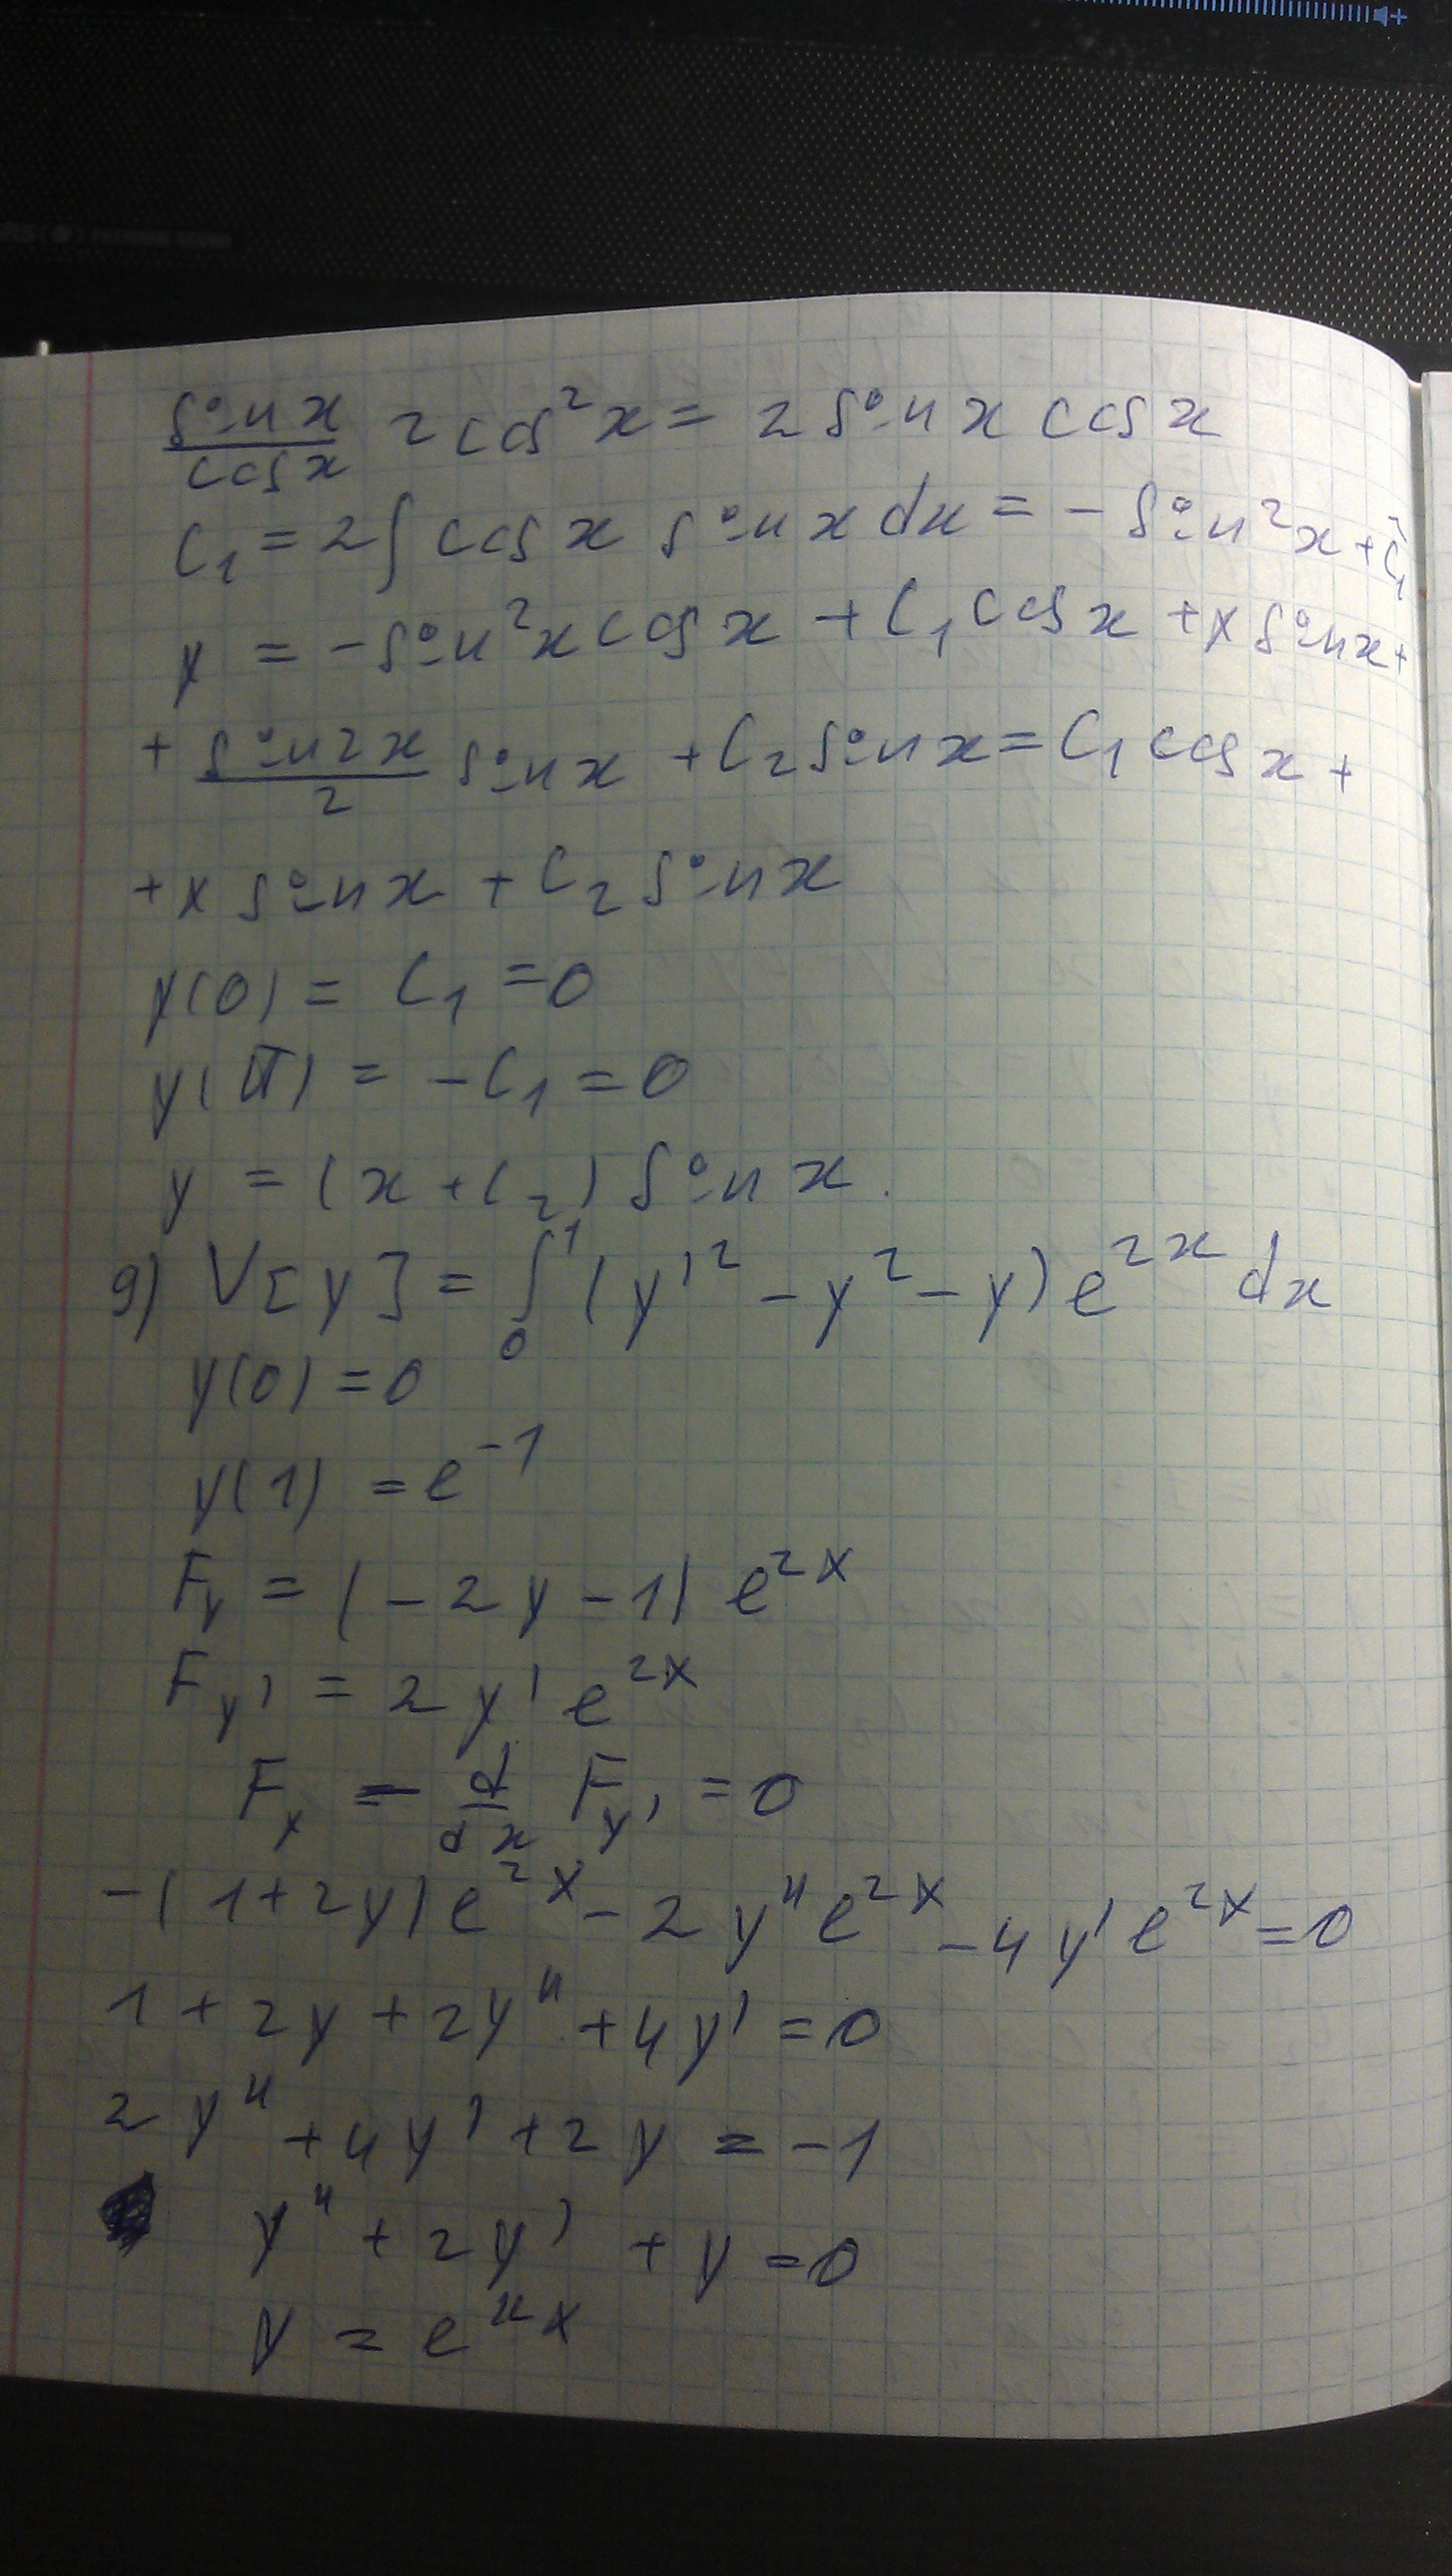 sin x / cos x 2 cos² x = 2 sin x cos x
C₁ = 2 ∫ cos x sin x dx = - sin² x + C̃₁
y = - sin² x cos x + C₁ cos x + x sin x +
+ sin 2x / 2 sin x + C₂ sin x = C₁ cos x +
+ x sin x + C₂ sin x
y(0) = C₁ = 0
y(π) = - C₁ = 0
y = (x + C₂) sin x.
9) V[y] = ∫₀¹ (y'² - y² - y) e^{2x} dx
y(0) = 0
y(1) = e^{-1}
F_y = (-2y - 1) e^{2x}
F_{y'} = 2y' e^{2x}
F_y - d/dx F_{y'} = 0
-(1 + 2y) e^{2x} - 2y'' e^{2x} - 4y' e^{2x} = 0
1 + 2y + 2y'' + 4y' = 0
2y'' + 4y' + 2y = -1
y'' + 2y' + y = 0
y = e^{kx}